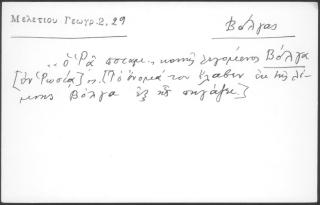 Μελετίου Γεωγρ. 2, 29
Βόλγας
,, ὁ Ῥᾶ ποταμ., κοινῶς λεγόμενος Βόλγα
[ἐν Ῥωσίᾳ],, [Τὸ ὄνομά του ἔλαβεν ἐκ τῆς λί-
μνης Βόλγα ἐξ ἧς πηγάζει.]